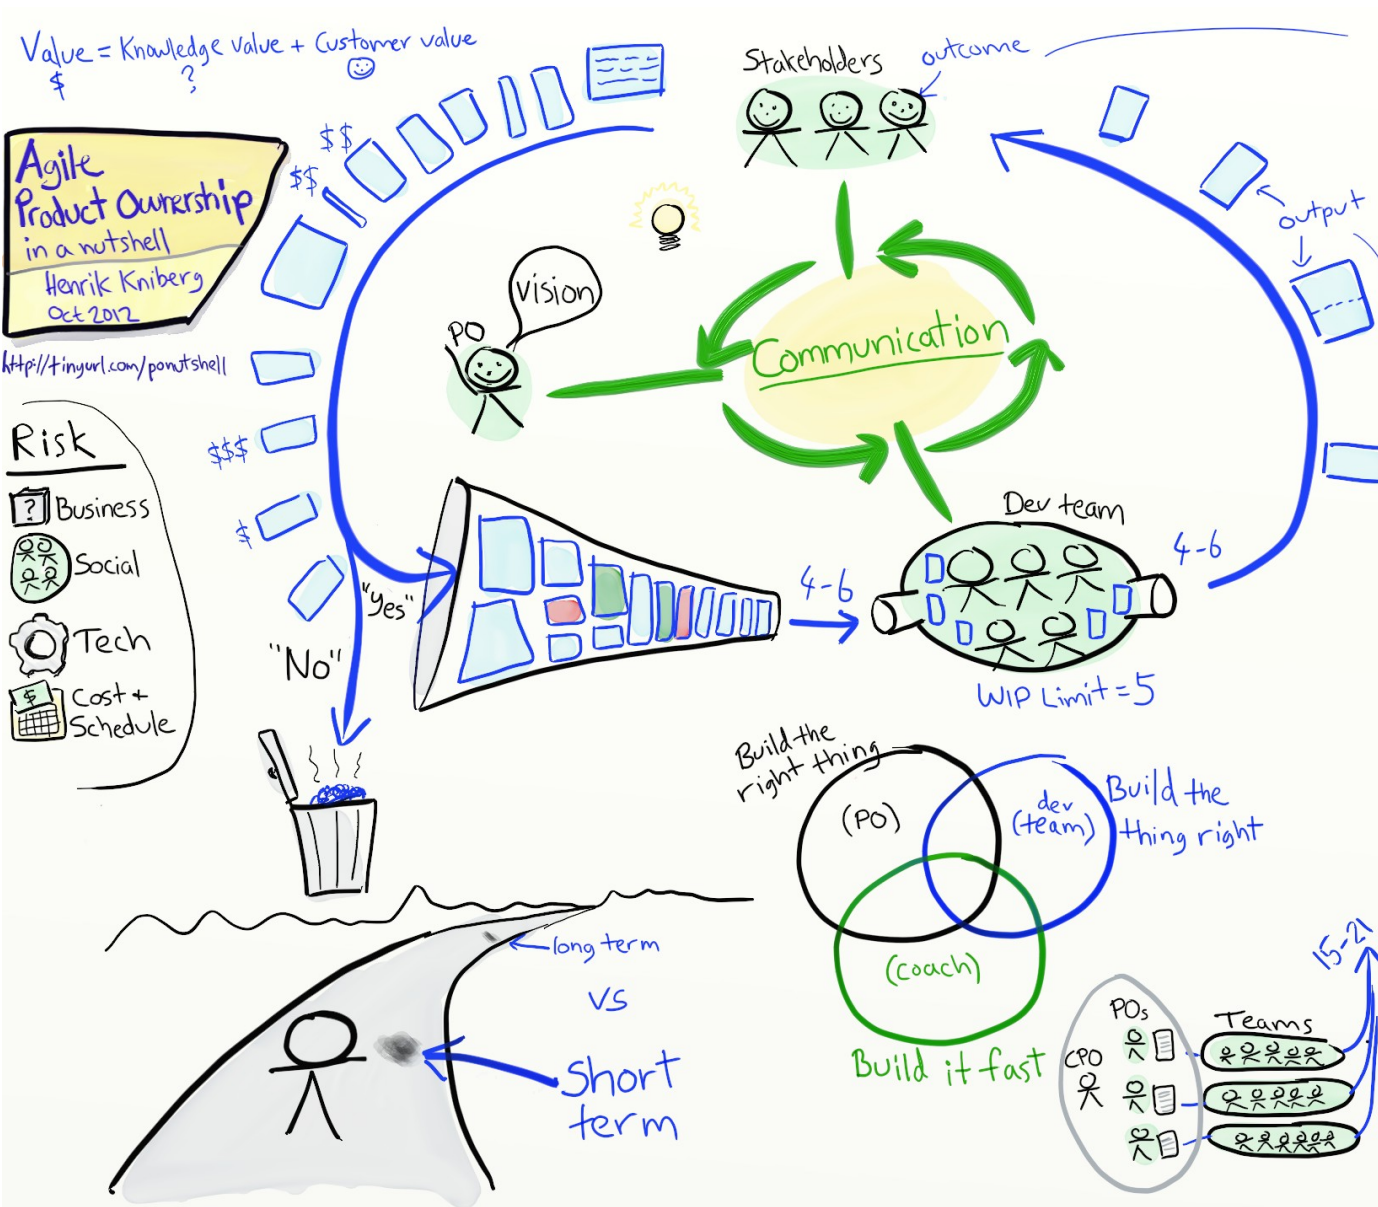 Value = Knowledge value + Customer value
$ ?
Agile
Product Ownership
in a nutshell
Henrik Kniberg
Oct 2012
http://tinyurl.com/ponutshell
Risk
? Business
Social
Tech
$ Cost +
Schedule
$$
$$
$$$
$
"Yes"
"No"
PO
vision
Stakeholders
outcome
output
Communication
Dev team
4-6
4-6
WIP Limit = 5
Build the
right thing
(PO)
dev
(team)
Build the
thing right
(coach)
Build it fast
long term
vs
Short
term
15-21
POs
Teams
CPO